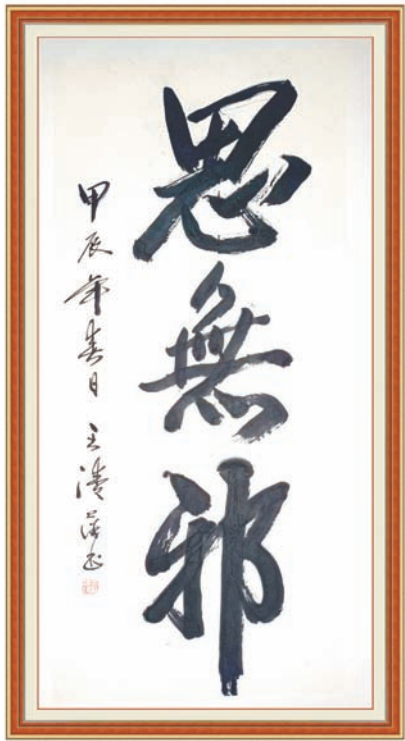 思無邪
甲辰年春日 王清